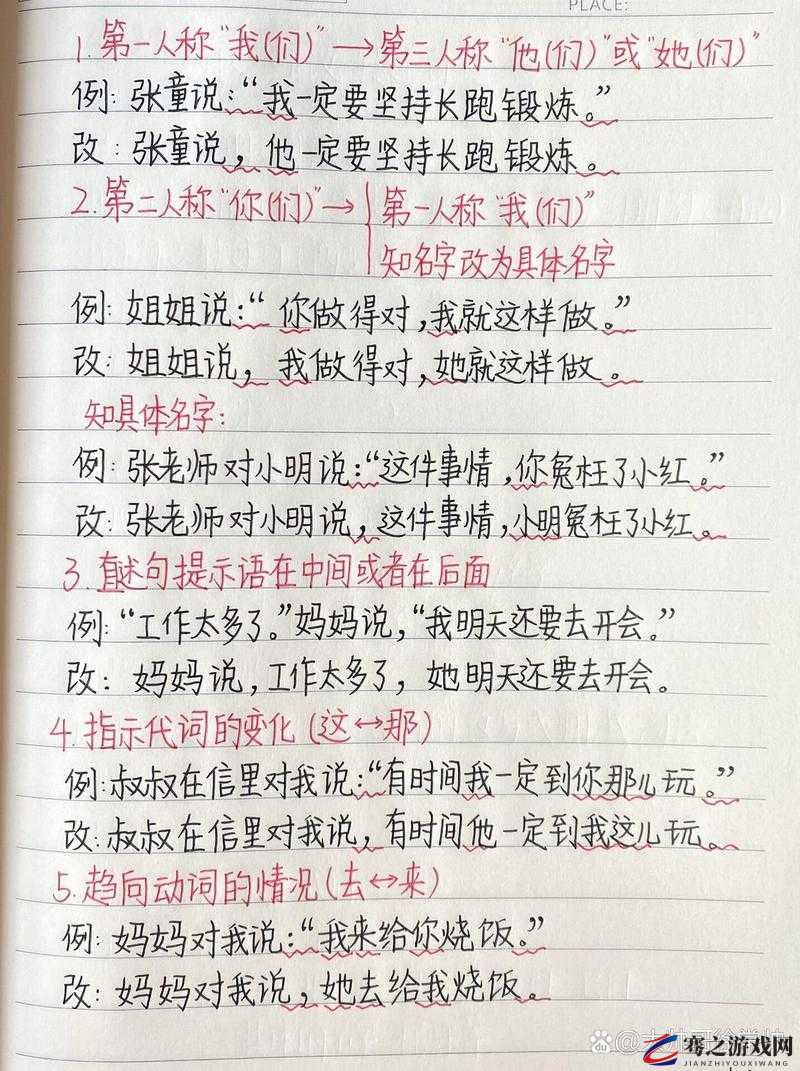 PLACE:
1.第一人称“我(们)”→第三人称“他(们)”或“她(们)”
例:张童说:“我一定要坚持长跑锻炼。”
改:张童说,他一定要坚持长跑锻炼。
2.第二人称“你(们)”→第一人称“我(们)”
知名字改为具体名字
例:姐姐说:“你做得对,我就这样做。”
改:姐姐说,我做得对,她就这样做。
知具体名字:
例:张老师对小明说:“这件事情,你冤枉了小红。”
改:张老师对小明说,这件事情,小明冤枉了小红。
3.直述句提示语在中间或者在后面
例:“工作太多了。”妈妈说,“我明天还要去开会。”
改:妈妈说,工作太多了,她明天还要去开会。
4.指示代词的变化(这↔那)
例:叔叔在信里对我说:“有时间我一定到你那儿玩。”
改:叔叔在信里对我说,有时间他一定到我这儿玩。
5.趋向动词的情况(去↔来)
例:妈妈对我说:“我来给你烧饭。”
改:妈妈对我说,她去给我烧饭。
骞之游戏网
JIANZHIYOUXIWANG